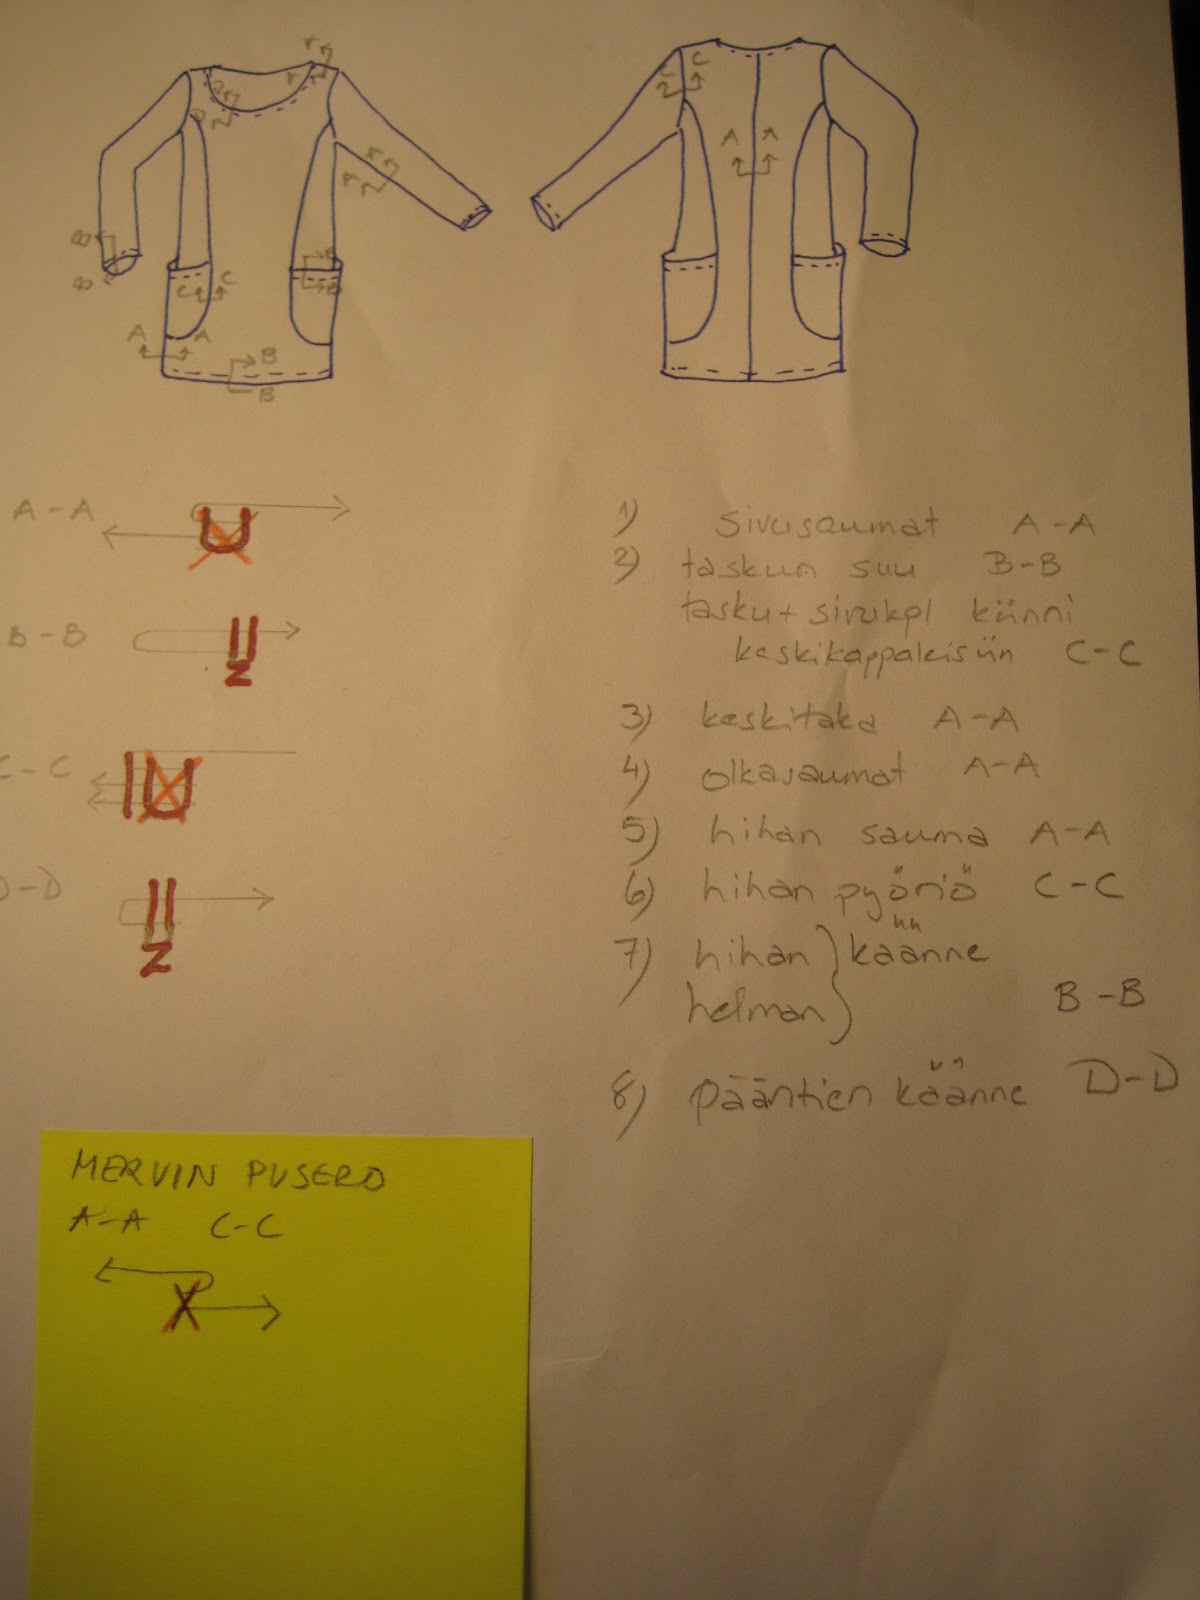 A A
A A
B
B
C C
B
B
B
B
C C
A A
A-A
B-B
C-C
D-D
1) sivusaumat A-A
2) taskun suu B-B
tasku+sivukpl kiinni
keskikappaleisiin C-C
3) keskitaka A-A
4) olkasaumat A-A
5) hihan sauma A-A
6) hihan pyöriö C-C
7) hihan } käänne
helman } B-B
8) pääntien käänne D-D
MERVIN PUSERO
A-A C-C